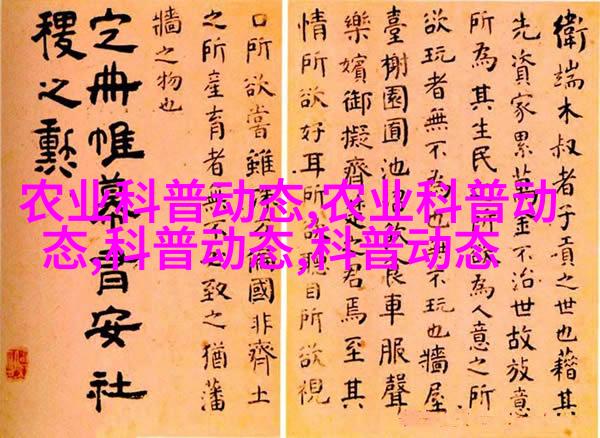 农业科普动态,农业科普动
态,科普动态,科普动态
衛端木叔者子貢之世也藉其
先資家累萬金不治世故放意
所為其生民所欲為人意之所
欲玩者無不為也無不玩也牆屋
臺榭園囿池沼飲食車服聲
樂嬪御擬齊楚之君焉至其
情所欲好耳所欲聽目所欲視
口所欲嘗雖殊方偏國非齊土
之所產育者無不必致之猶藩
牆之物也
定冊帷幕有安社
稷之勲